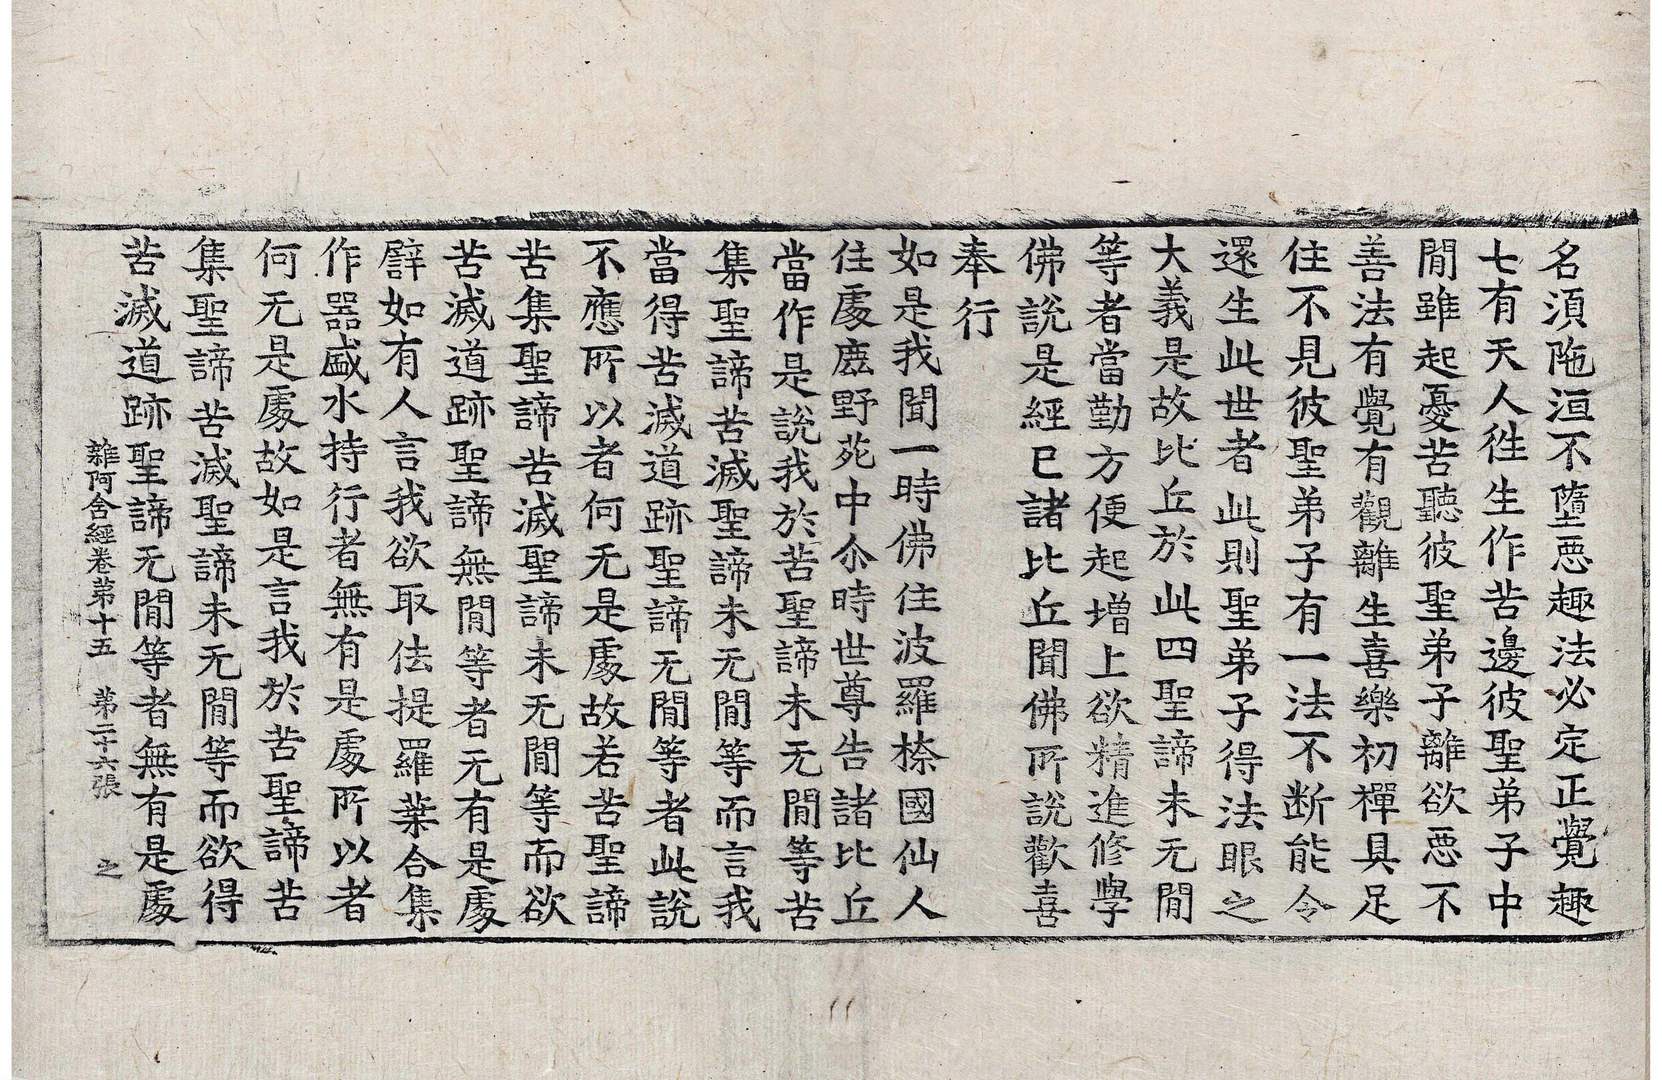 名須陁洹不墮惡趣法必定正覺趣
七有天人徃生作苦邊彼聖弟子中
閒雖起憂苦聽彼聖弟子離欲惡不
善法有覺有觀離生喜樂初禪具足
住不見彼聖弟子有一法不断能令
還生此世者此則聖弟子得法眼之
大義是故比丘於此四聖諦未无閒
等者當勤方便起增上欲精進修學
佛說是經已諸比丘聞佛所說歡喜
奉行
如是我聞一時佛住波羅㮈國仙人
住䖏鹿野苑中尒時世尊告諸比丘
當作是說我於苦聖諦未无閒等苦
集聖諦苦滅聖諦未无閒等而言我
當得苦滅道跡聖諦无閒等者此說
不應所以者何无是䖏故若苦聖諦
苦集聖諦苦滅聖諦未无閒等而欲
苦滅道跡聖諦無閒等者无有是䖏
譬如有人言我欲取佉提羅葉合集
作器盛水持行者無有是䖏所以者
何无是䖏故如是言我於苦聖諦苦
集聖諦苦滅聖諦未无閒等而欲得
苦滅道跡聖諦无閒等者無有是䖏
雜阿含經卷第十五 第二十六張 之